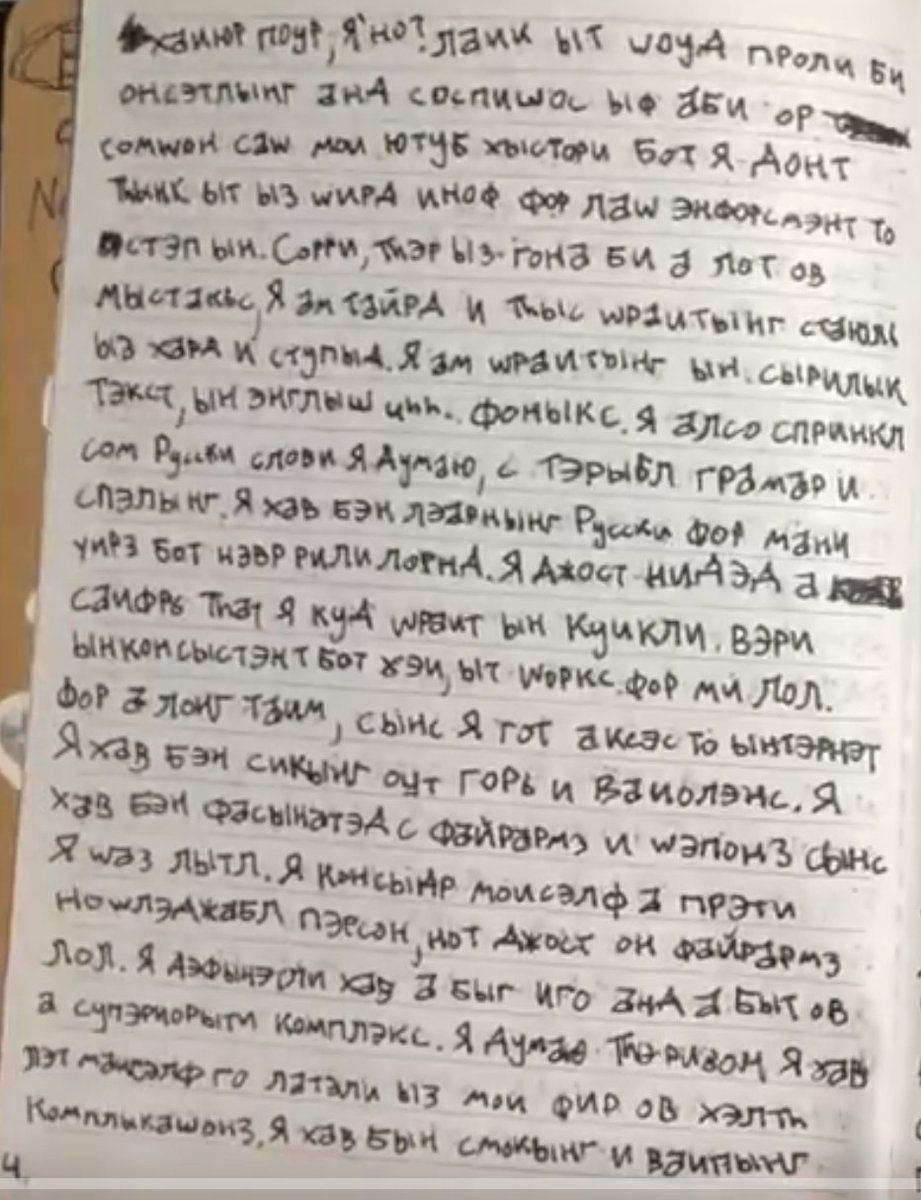 хаиюр поур, я'но? лаик ыт шоуд проли би
онсэтлынг анд соспишос ыф аби ор
сомшон саш мои ютуб хыстори бот я донт
тһинк ыт ыз ширд иноф фор лаш энфорсмэнт то
стэп ын. Сорри, тһэр ыз гона би а лот ов
мыстакьс, я ам тайрд и тһыс шраитынг
ыз хард и ступыд. Я ам шраитынг ын сырилык
тэкст, ын энглыш фоныкс. Я алсо спринкл
сом Русски слови я думаю, с тэрыбл грамар и
спэлынг. Я хав бэн лэарнынг Русски фор мани
уирз бот нэвр рили лорнд. Я джост нидэд а
саифрь тһат я куд шраит ын куикли. Вэри
ынконсыстэнт бот хэи, ыт шоркс фор ми лол.
Фор а лонг таим, сынс я гот аксэс то ынтэрнэт
Я хав бэн сикынг оут горь и ваиолэнс. Я
хав бэн фасынатэд с файрармз и шэпонз сынс
я шаз лытл. Я консыдр моисэлф а прэти
ношлэджабл пэрсон, нот джост он файрармз
лол. Я дэфынэтли хав а быг иго анд а быт ов
а супэриорыти комплэкс. Я думаю тһэ ризон я хав
лэт маисэлф го латали ыз мои фир ов хэлтһ
компликашонз. Я хав бын смокынг и ваипынг
4.